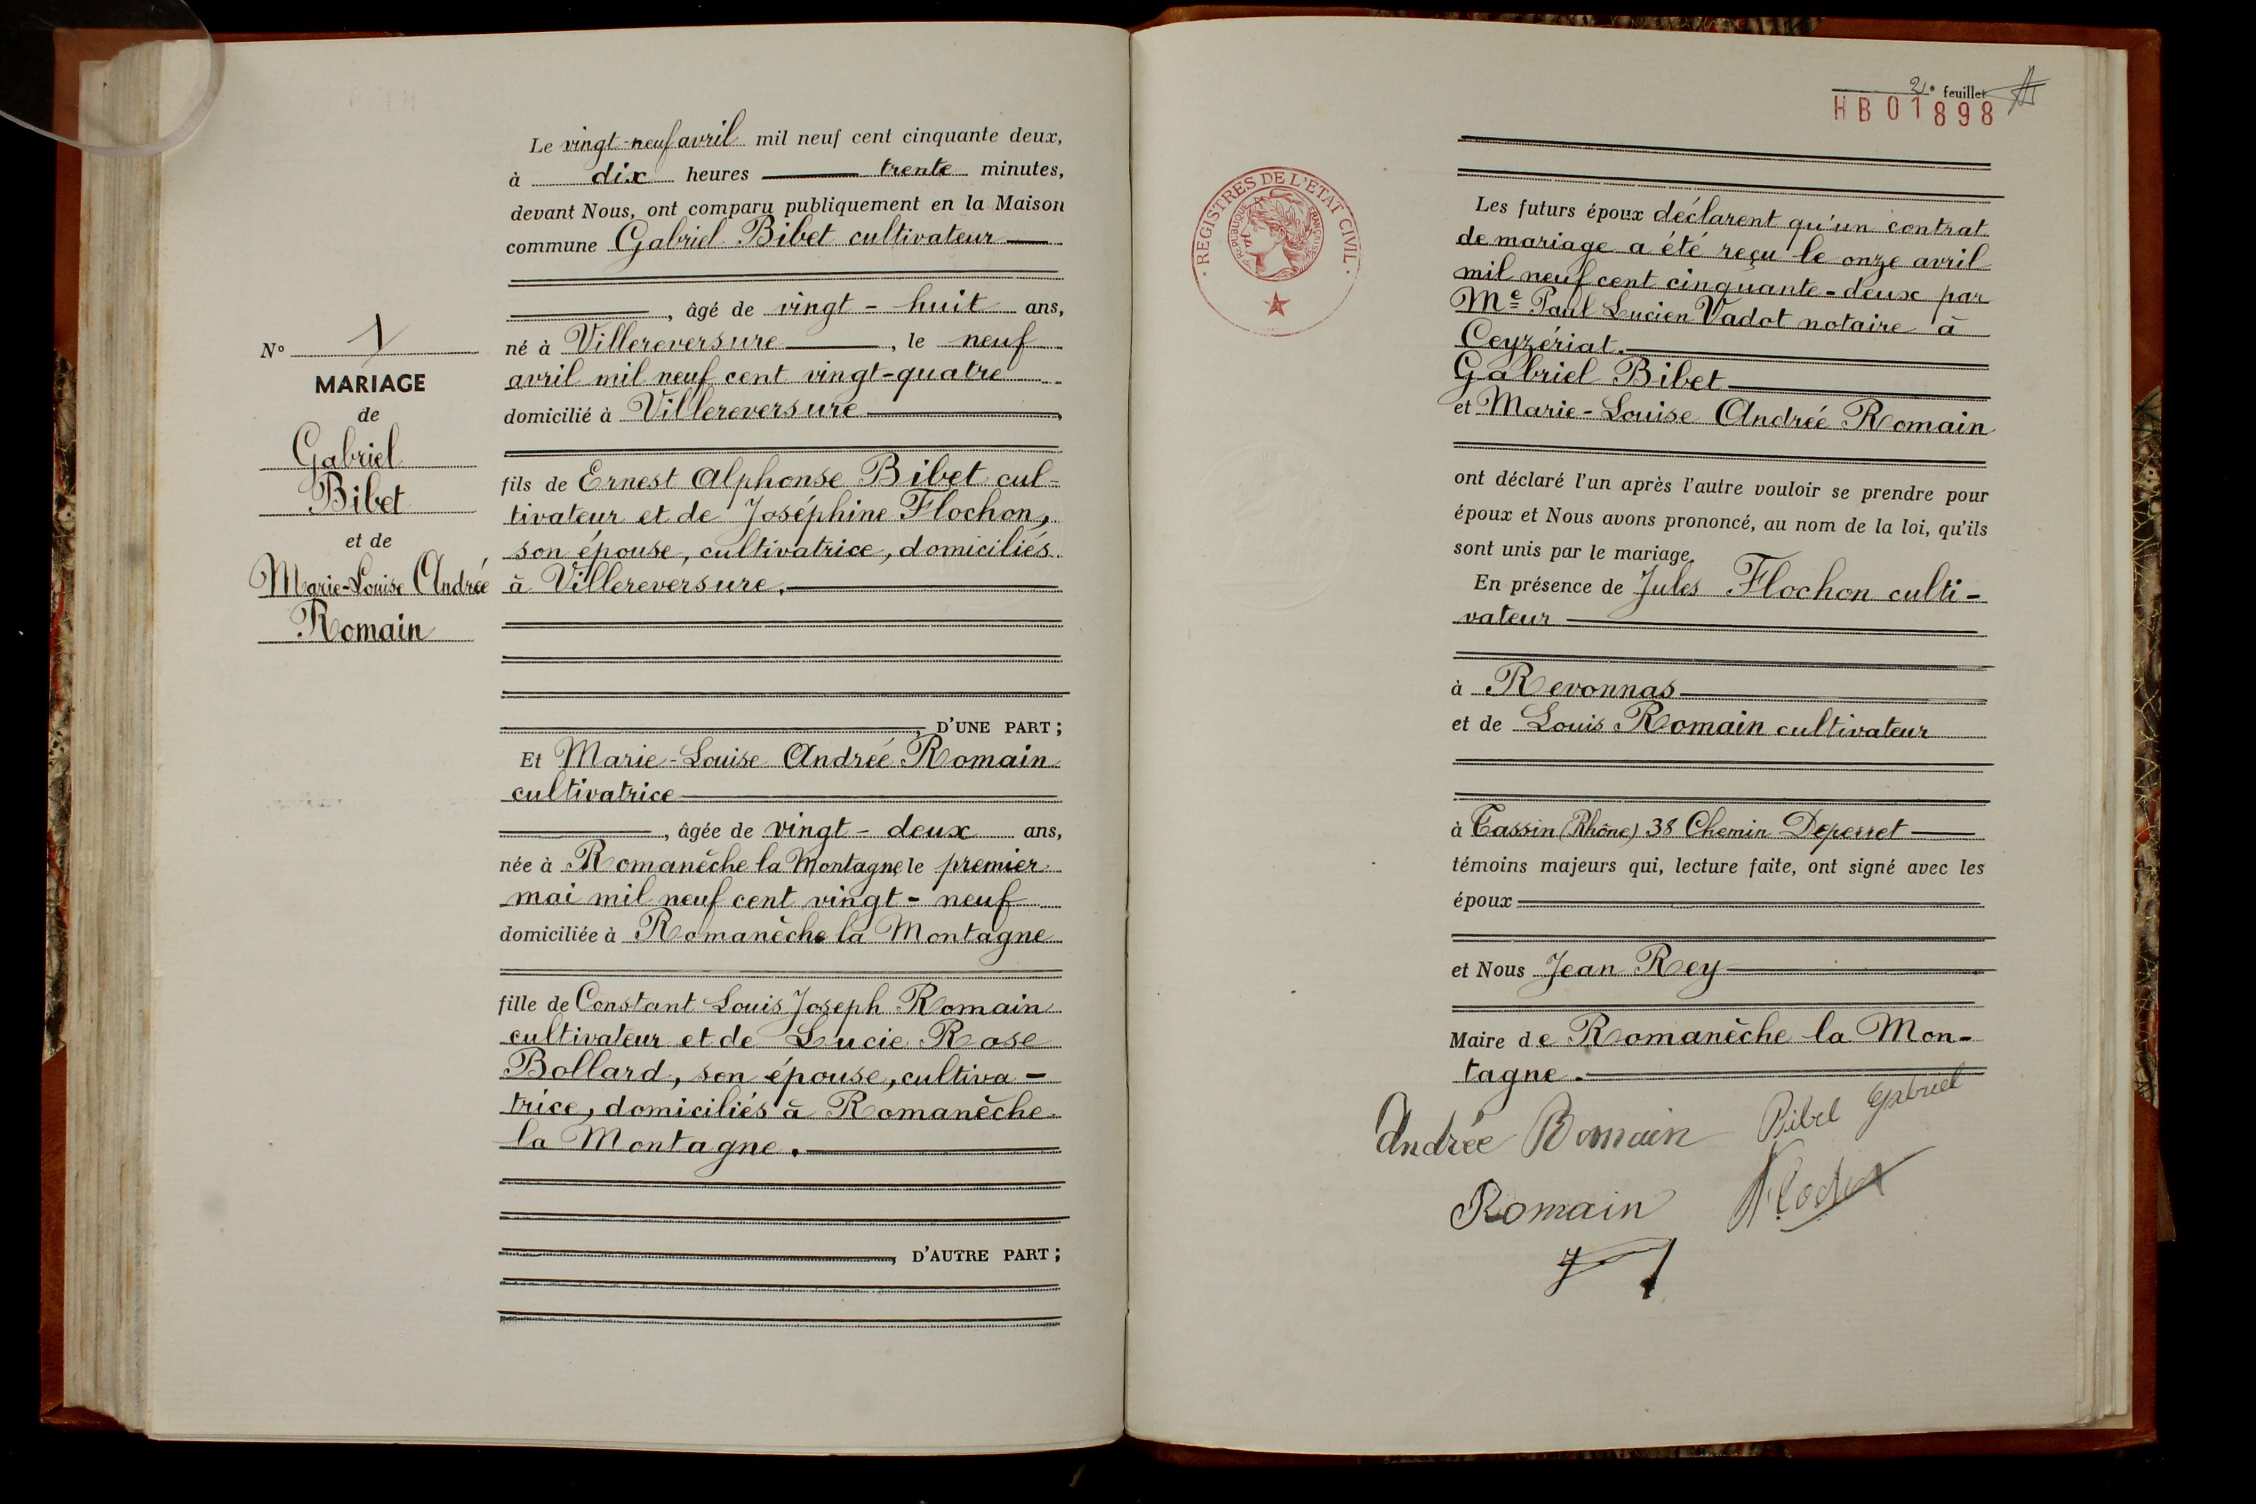 Le vingt-neuf avril mil neuf cent cinquante deux,
à dix heures trente minutes,
devant Nous, ont comparu publiquement en la Maison
commune Gabriel Bibet cultivateur
, âgé de vingt-huit ans,
né à Villereversure, le neuf
avril mil neuf cent vingt-quatre
domicilié à Villereversure
fils de Ernest Alphonse Bibet cul=
tivateur et de Joséphine Flochon,
son épouse, cultivatrice, domiciliés
à Villereversure.
, D'UNE PART ;
Et Marie-Louise Andrée Romain
cultivatrice
, âgée de vingt-deux ans,
née à Romanèche la Montagne le premier
mai mil neuf cent vingt-neuf
domiciliée à Romanèche la Montagne
fille de Constant Louis Joseph Romain
cultivateur et de Lucie Rose
Bollard, son épouse, cultiva-
trice, domiciliés à Romanèche
la Montagne.
, D'AUTRE PART ;
N° 1
MARIAGE
de
Gabriel
Bibet
et de
Marie-Louise Andrée
Romain
2e feuillet
HB01898
REGISTRES DE L'ETAT CIVIL
REPUBLIQUE FRANÇAISE
Les futurs époux déclarent qu'un contrat
de mariage a été reçu le onze avril
mil neuf cent cinquante-deux par
Me Paul Lucien Vadot notaire à
Ceyzériat.
Gabriel Bibet
et Marie-Louise Andrée Romain
ont déclaré l'un après l'autre vouloir se prendre pour
époux et Nous avons prononcé, au nom de la loi, qu'ils
sont unis par le mariage.
En présence de Jules Flochon culti-
vateur
à Revonnas
et de Louis Romain cultivateur
à Tassin (Rhône) 38 Chemin Deperret
témoins majeurs qui, lecture faite, ont signé avec les
époux
et Nous Jean Rey
Maire de Romanèche la Mon-
tagne.
Andrée Romain Bibet Gabriel
Romain